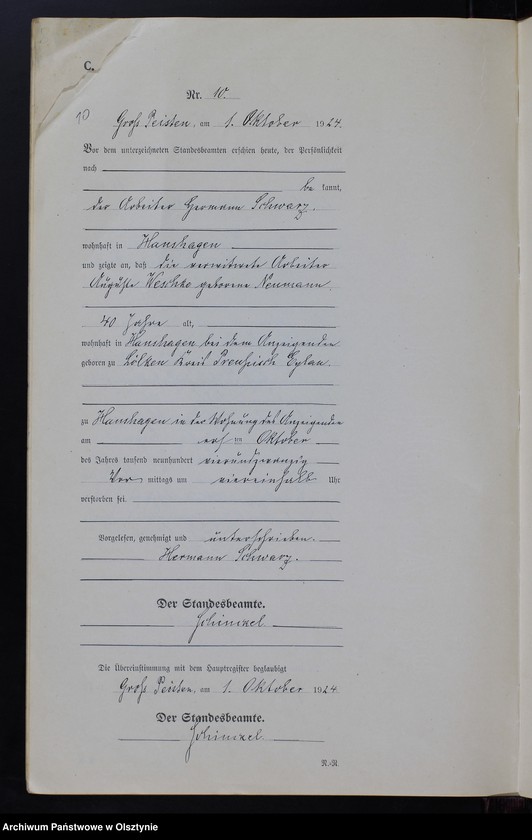 C.
Nr. 10.
10
Groß Peisten, am 1. Oktober 1924.
Vor dem unterzeichneten Standesbeamten erschien heute, der Persönlichkeit
nach
be kannt,
der Arbeiter Hermann Schwarz.
wohnhaft in Hanshagen
und zeigte an, daß die verwitwete Arbeiter
Auguste Weschke geborene Neumann.
40 Jahre alt,
wohnhaft in Hanshagen bei dem Anzeigenden
geboren zu Lölken Kreis Preußisch Eylau.
zu Hanshagen in der Wohnung des Anzeigenden
am ersten Oktober
des Jahres tausend neunhundert vierundzwanzig
Vor mittags um viereinhalb Uhr
verstorben sei.
Vorgelesen, genehmigt und unterschrieben.
Hermann Schwarz.
Der Standesbeamte.
Schimkel
Die Übereinstimmung mit dem Hauptregister beglaubigt
Groß Peisten, am 1. Oktober 1924
Der Standesbeamte.
Schimkel
N.-R.
Archiwum Państwowe w Olsztynie